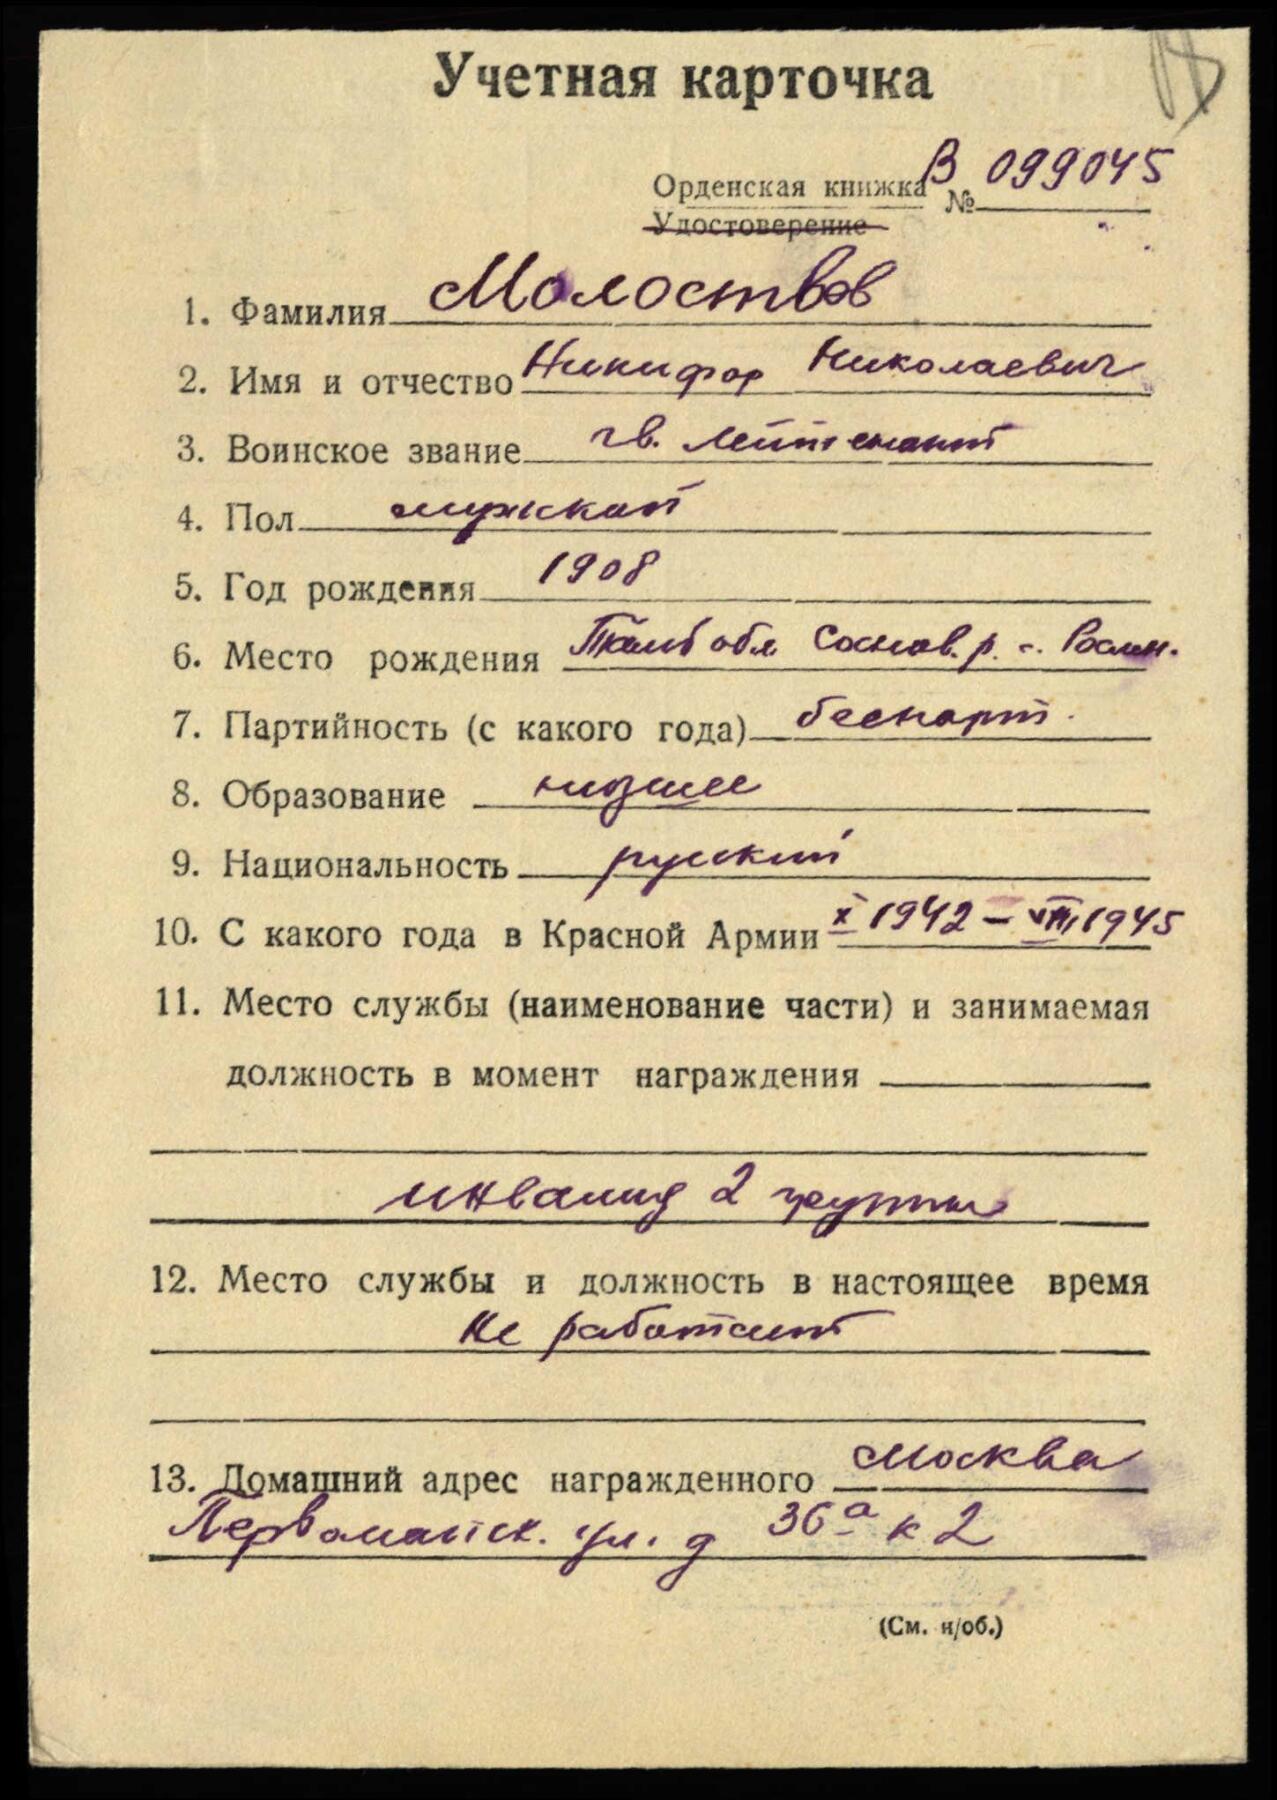 Учетная карточка
Орденская книжка В № 099045
Удостоверение
1. Фамилия Молоствов
2. Имя и отчество Никифор Николаевич
3. Воинское звание гв. лейтенант
4. Пол мужской
5. Год рождения 1908
6. Место рождения Тамб обл. Соснов. р. с.
7. Партийность (с какого года) беспарт.
8. Образование низшее
9. Национальность русский
10. С какого года в Красной Армии X 1942 – VIII 1945
11. Место службы (наименование части) и занимаемая
должность в момент награждения
инвалид 2 группы
12. Место службы и должность в настоящее время
не работает
13. Домашний адрес награжденного Москва
Первомайск. ул. д 36а к 2
(См. н/об.)